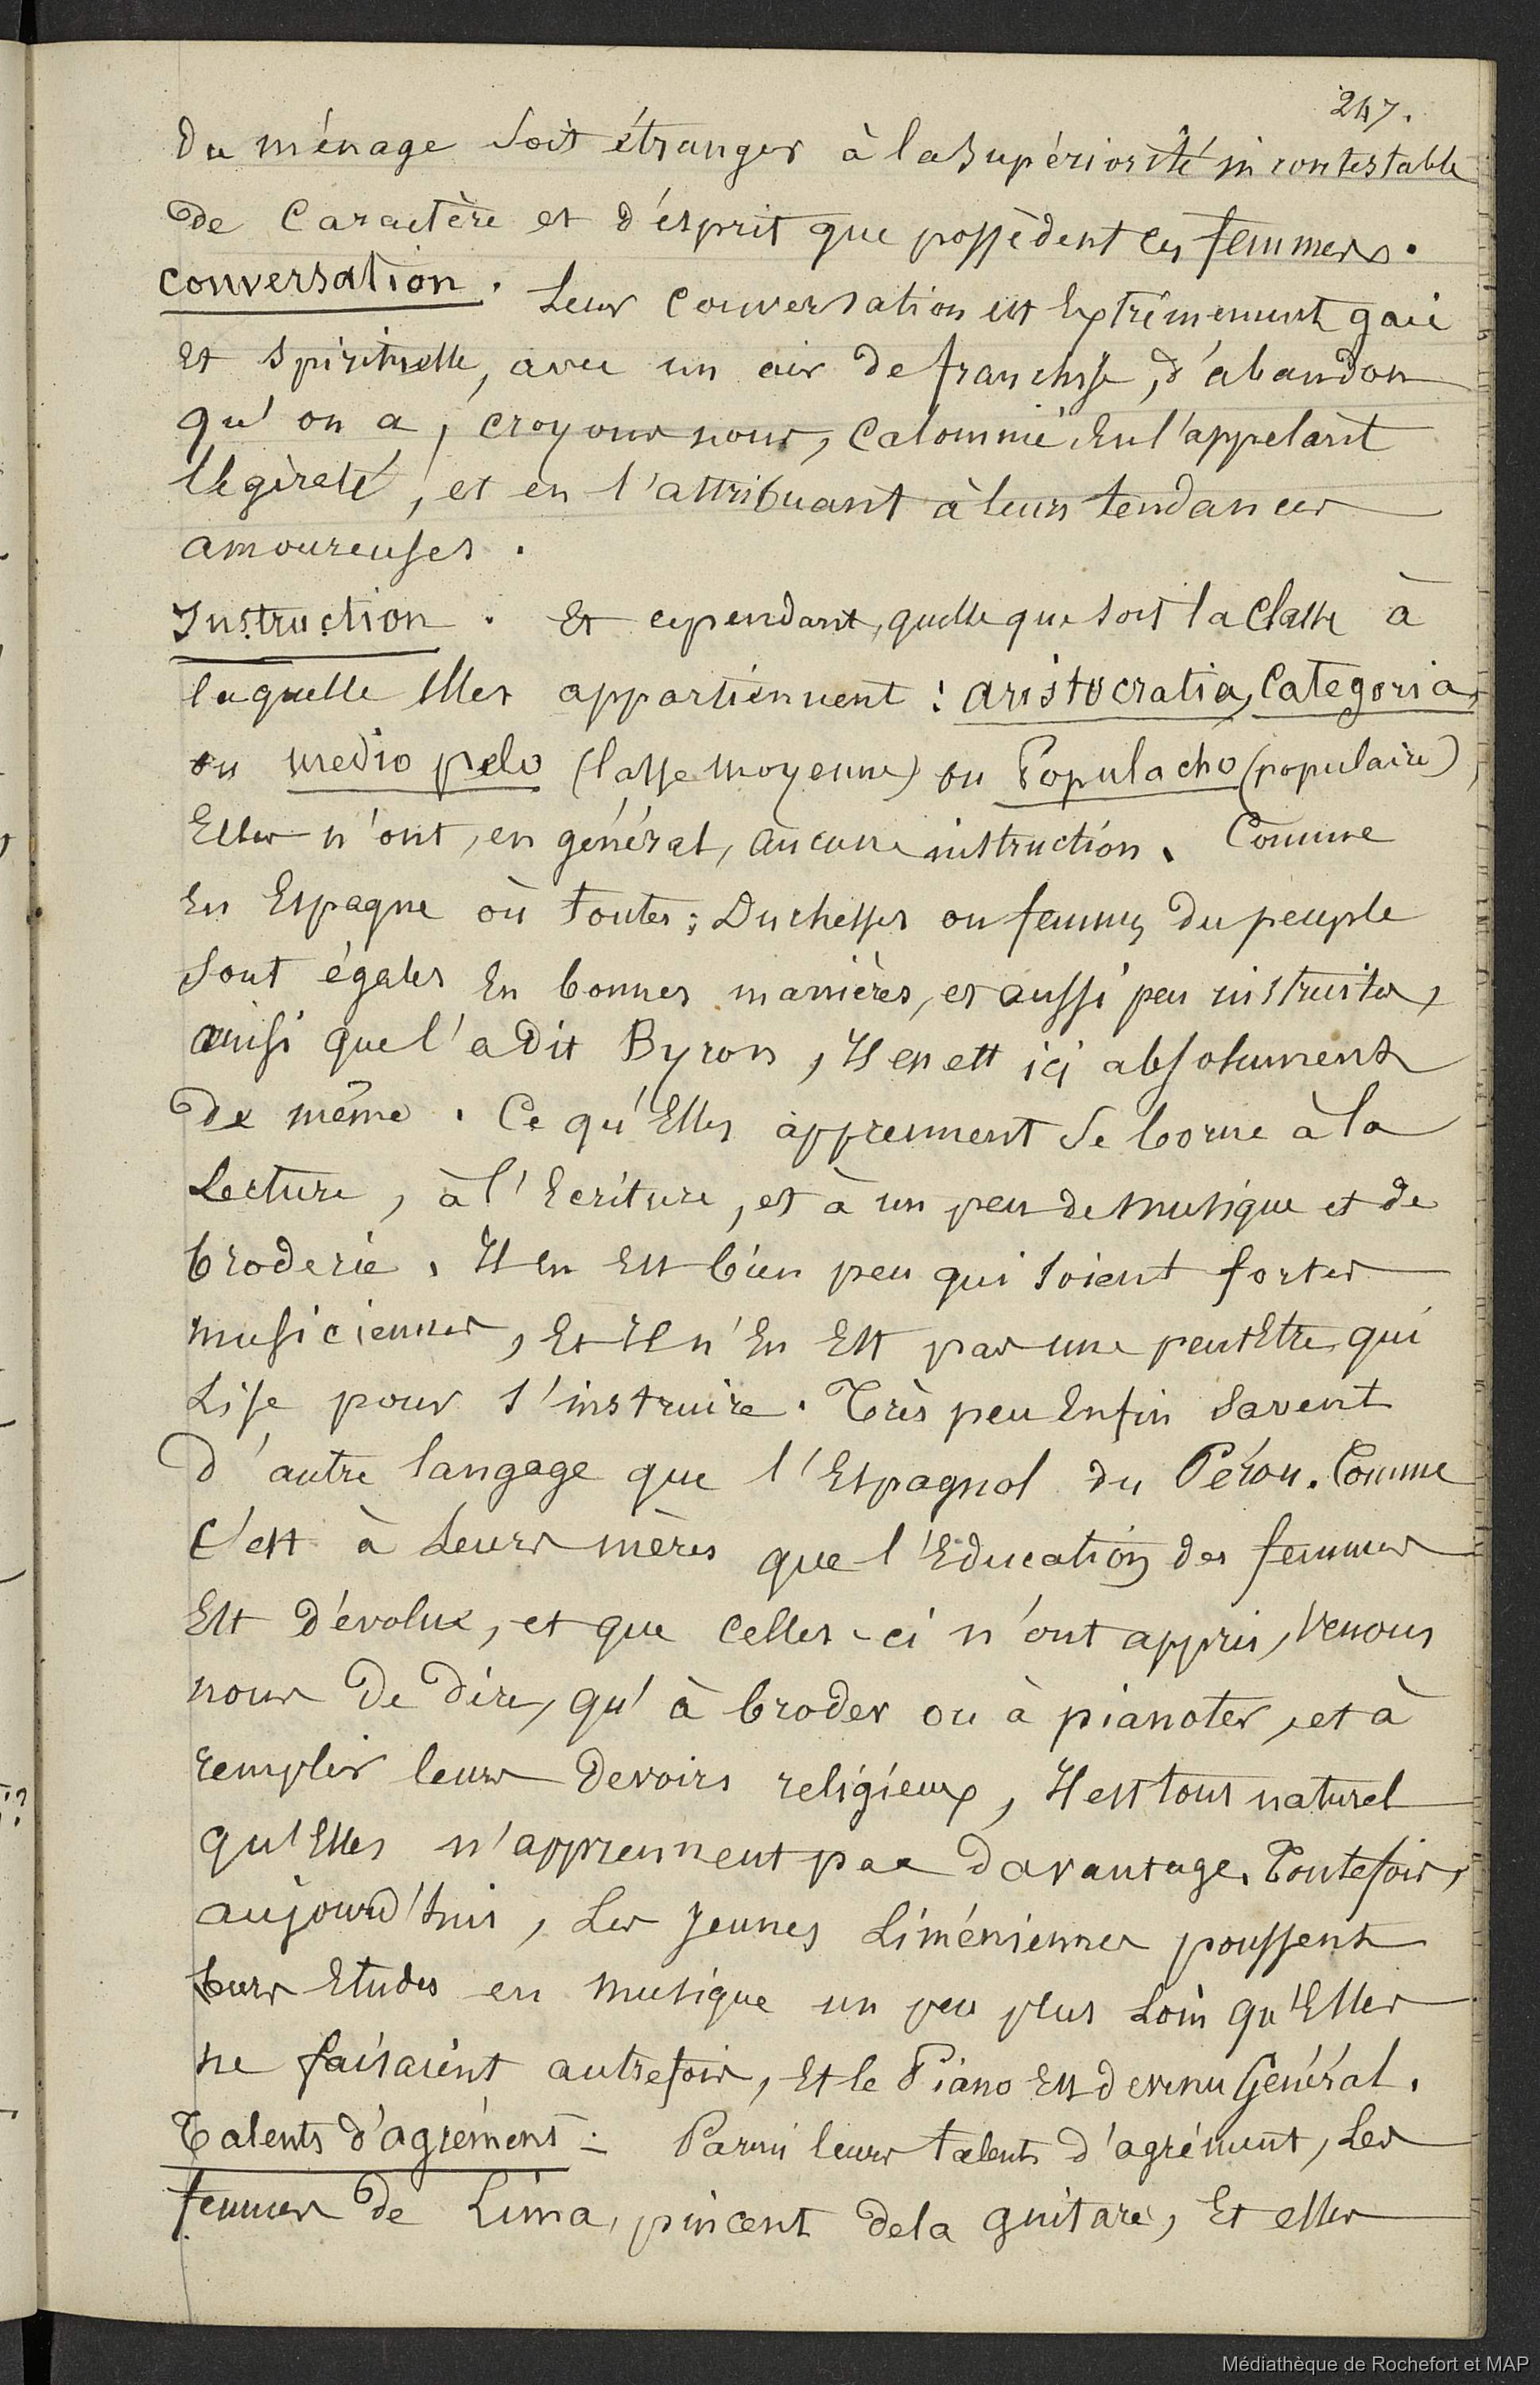 247.
du ménage soit étranger à la supériorité incontestable
de Caractère et d'esprit que possèdent ces femmes.
Conversation. Leur conversation est Extrêmement gaie
et spirituelle, avec un air de franchise, d'abandon
qu'on a, croyons nous, Calomnié En l'appelant
légèreté, et en l'attribuant à leurs tendances
amoureuses.
Instruction. Et cependant, quelle que soit la Classe à
laquelle Elles appartiennent : aristocratia, Categoria,
ou medio pelo (classe moyenne) ou Populacho (populaire)
Elles n'ont, en général, aucune instruction. Comme
En Espagne où toutes : Duchesses ou femmes du peuple
sont égales En bonnes manières, et aussi peu instruites,
ainsi que l'a dit Byron, Il en est ici absolument
de même. Ce qu'Elles apprennent se borne à la
Lecture, à l'Ecriture, et à un peu de musique et de
broderie. Il En Est bien peu qui soient fortes
musiciennes, Et Il n'En Est pas une peut Etre qui
Lise pour s'instruire. Très peu Enfin savent
d'autre langage que l'Espagnol du Pérou. Comme
c'est à Leurs mères que l'Education des femmes
Est dévolue, et que celles-ci n'ont appris, venons
nous de dire, qu'à broder ou à pianoter, et à
remplir leurs devoirs religieux, Il est tout naturel
qu'Elles n'apprennent pas davantage. Toutefois,
aujourd'hui, Les jeunes Liméniennes poussent
leurs Etudes en musique un peu plus Loin qu'Elles
ne faisaient autrefois, Et le Piano Est devenu Général.
Talents d'agrément :- Parmi leurs talents d'agrément, Les
femmes de Lima, pincent de la guitare, Et elles
Médiathèque de Rochefort et MAP